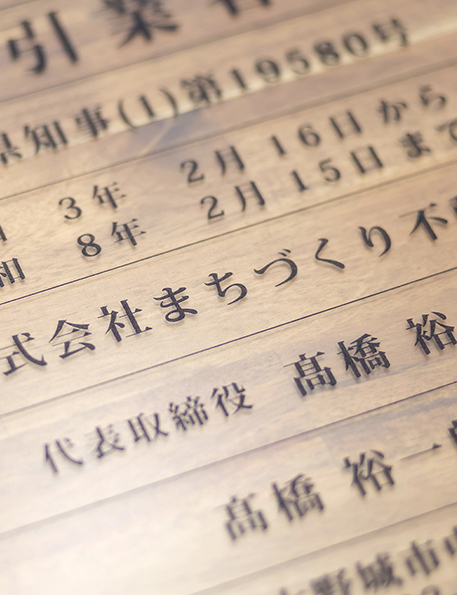 引業者
県知事(1)第19580号
3年 2月16日から
和 8年 2月15日まで
式会社まちづくり不
代表取締役 髙橋 裕
髙橋 裕一
野城市